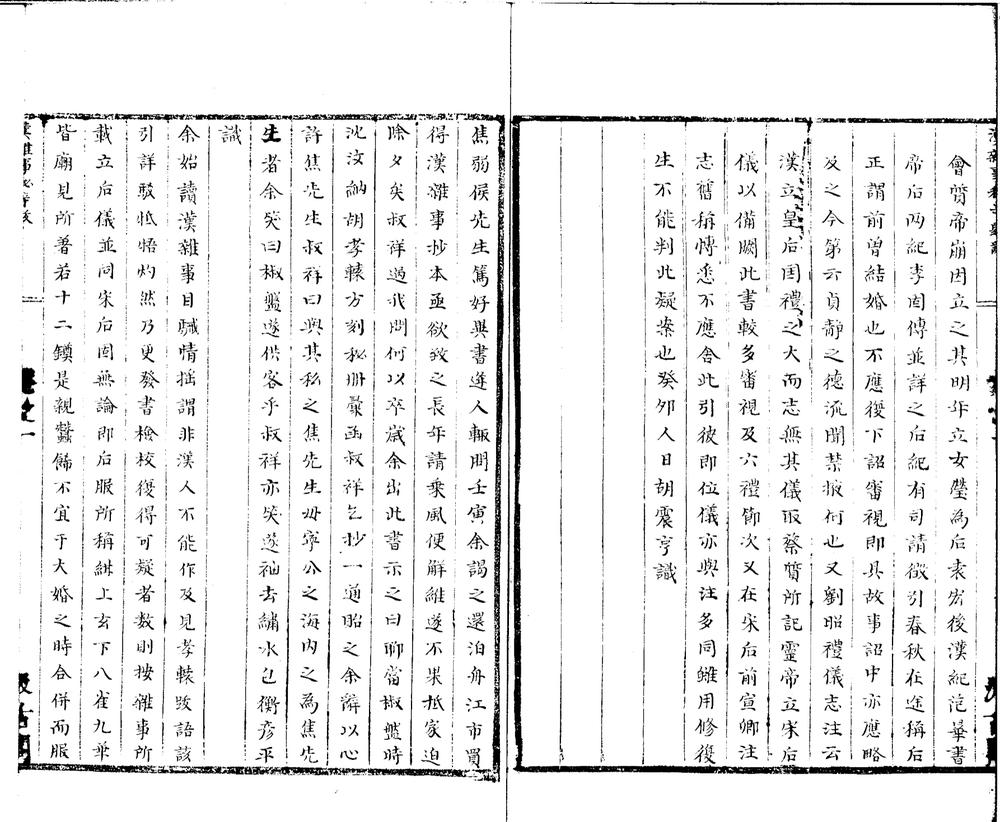 會質帝崩因立之其明年立女瑩為后袁宏後漢紀范曄書
帝后两紀李固傳並詳之后紀有司請徵引春秋在途稱后
正謂前曾結婚也不應復下詔審視即具故事詔中亦應略
及之今第云貞靜之德流聞禁掖何也又劉昭禮儀志注云
漢立皇后國禮之大而志無其儀取蔡質所記靈帝立宋后
儀以備闕此書較多審視及六禮節次又在宋后前宣卿注
志舊稱博悉不應舍此引彼即位儀亦與注多同雖用修復
生不能判此疑案也癸夘人日胡震亨識
焦弱侯先生篤好異書逢人輒問壬寅余謁之還泊舟江市買
得漢雜事抄本亟欲致之長年請乗風便解維遂不果抵家迫
除夕矣叔祥過我問何以卒歲余出此書示之曰聊當椒盤時
沈汝納胡孝轅方刻秘册彙函叔祥乞抄一通昭之余辭以心
許焦先生叔祥曰與其私之焦先生毋寧公之海内之為焦先
生者余笑曰椒盤遂供客乎叔祥亦笑遂袖去繡水包衡彦平
識
余始讀漢雜事目駴情摇謂非漢人不能作及見孝轅跋語該
引詳駁牴牾灼然乃更發書檢校復得可疑者数則按雜事所
載立后儀並同宋后固無論即后服所稱紺上玄下八雀九華
皆廟見所著若十二鐷是親蠶飾不宜于大婚之時合併而服
卷之一
汲古閣